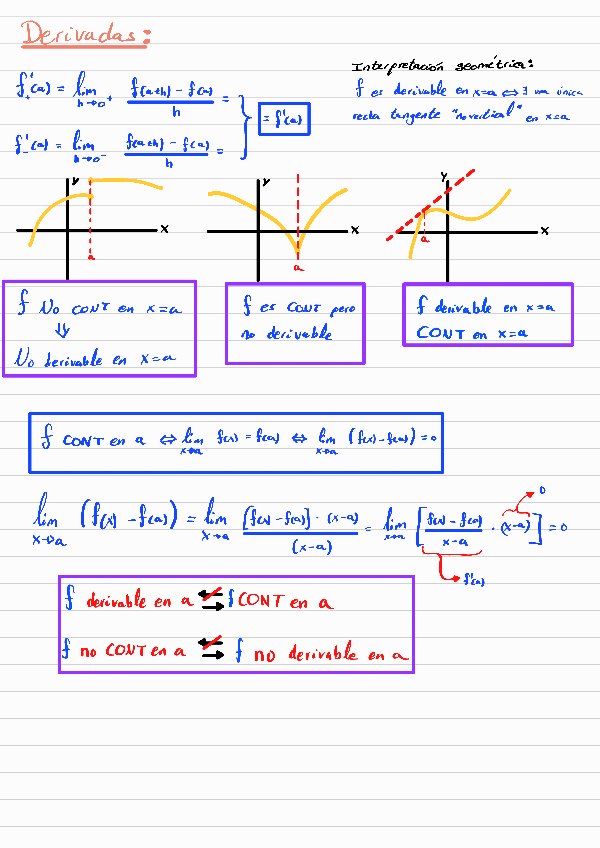 Derivadas:
f'₊(a) = lim h→0⁺ f(a+h) - f(a) / h =
f'₋(a) = lim h→0⁻ f(a+h) - f(a) / h =
= f'(a)
Interpretación geométrica:
f es derivable en x=a ⇔ ∃ una única
recta tangente "no vertical" en x=a
y
x
a
y
x
a
y
x
a
f No CONT en x=a
⇓
No derivable en x=a
f es CONT pero
no derivable
f derivable en x=a
CONT en x=a
f CONT en a ⇔ lim x→a f(x) = f(a) ⇔ lim x→a (f(x) - f(a)) = 0
lim x→a (f(x) - f(a)) = lim x→a [f(x) - f(a)] · (x-a) / (x-a) = lim x→a [f(x) - f(a) / x-a · (x-a)] = 0
0
f'(a)
f derivable en a ⇍ ⇒ f CONT en a
f no CONT en a ⇍ ⇒ f no derivable en a